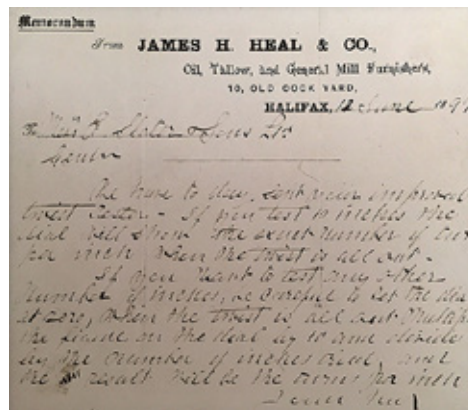 Memorandum
From JAMES H. HEAL & CO.,
Oil, Tallow, and General Mill Furnishers,
10, OLD COCK YARD,
HALIFAX, 12 June 189
To Slater & Sons
We have to day sent your improved
twist tester. If you test 10 inches the
dial will show the exact number of
per inch when the twist is all out.
If you want to test any other
number of inches, be careful to set the
at zero, when the twist is all out
the figure on the dial by 10 and divide
by the number of inches and
the result will be the turns per inch